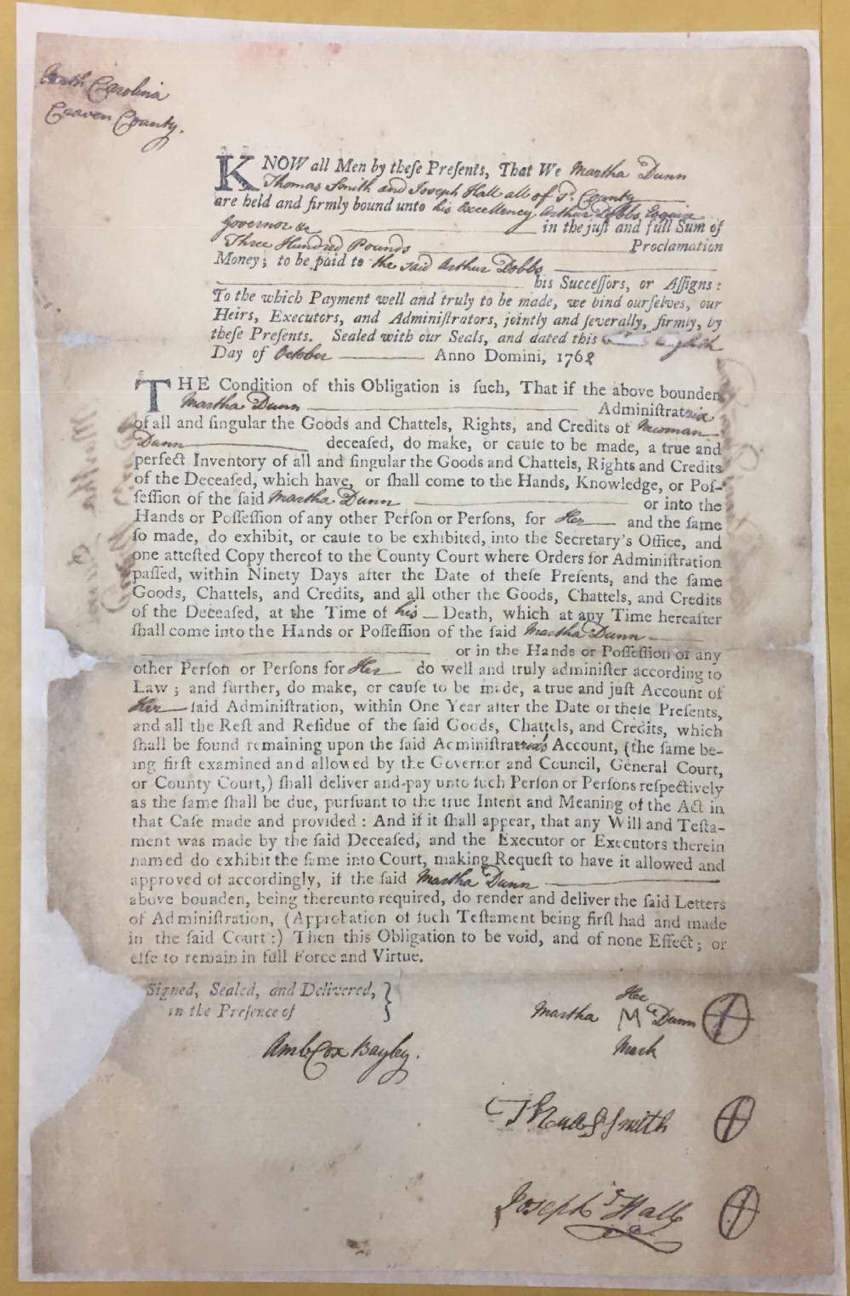 North Carolina
Craven County.
KNOW all Men by theſe Preſents, That We Martha Dunn
Thomas Smith and Joseph Hall all of Sd. County
are held and firmly bound unto his Excellency Arthur Dobbs Esquire
Governor &c in the juſt and full Sum of
Three Hundred Pounds Proclamation
Money; to be paid to the said Arthur Dobbs
his Succeſſors, or Aſſigns:
To the which Payment well and truly to be made, we bind ourſelves, our
Heirs, Executors, and Adminiſtrators, jointly and ſeverally, firmly, by
theſe Preſents. Sealed with our Seals, and dated this
Day of October Anno Domini, 1762
THE Condition of this Obligation is ſuch, That if the above bounden
Martha Dunn Adminiſtratrix
of all and ſingular the Goods and Chattels, Rights, and Credits of
Dunn deceaſed, do make, or cauſe to be made, a true and
perfect Inventory of all and ſingular the Goods and Chattels, Rights and Credits
of the Deceaſed, which have, or ſhall come to the Hands, Knowledge, or Poſ-
ſeſſion of the ſaid Martha Dunn or into the
Hands or Poſſeſſion of any other Perſon or Perſons, for Her and the ſame
ſo made, do exhibit, or cauſe to be exhibited, into the Secretary's Office, and
one atteſted Copy thereof to the County Court where Orders for Adminiſtration
paſſed, within Ninety Days after the Date of theſe Preſents, and the ſame
Goods, Chattels, and Credits, and all other the Goods, Chattels, and Credits
of the Deceaſed, at the Time of his Death, which at any Time hereafter
ſhall come into the Hands or Poſſeſſion of the ſaid Martha Dunn
or in the Hands or Poſſeſſion of any
other Perſon or Perſons for Her do well and truly adminiſter according to
Law; and further, do make, or cauſe to be made, a true and juſt Account of
Her ſaid Adminiſtration, within One Year after the Date of theſe Preſents,
and all the Reſt and Reſidue of the ſaid Goods, Chattels, and Credits, which
ſhall be found remaining upon the ſaid Adminiſtratrix's Account, (the ſame be-
ing firſt examined and allowed by the Governor and Council, General Court,
or County Court,) ſhall deliver and pay unto ſuch Perſon or Perſons reſpectively
as the ſame ſhall be due, purſuant to the true Intent and Meaning of the Act in
that Caſe made and provided: And if it ſhall appear, that any Will and Teſta-
ment was made by the ſaid Deceaſed, and the Executor or Executors therein
named do exhibit the ſame into Court, making Requeſt to have it allowed and
approved of accordingly, if the ſaid Martha Dunn
above bounden, being thereunto required, do render and deliver the ſaid Letters
of Adminiſtration, (Approbation of ſuch Teſtament being firſt had and made
in the ſaid Court:) Then this Obligation to be void, and of none Effect; or
elſe to remain in full Force and Virtue.
Signed, Sealed, and Delivered,
in the Preſence of
Amb Cox Bayley.
Her
Martha M Dunn
Mark
Thos Smith
Joseph Hall